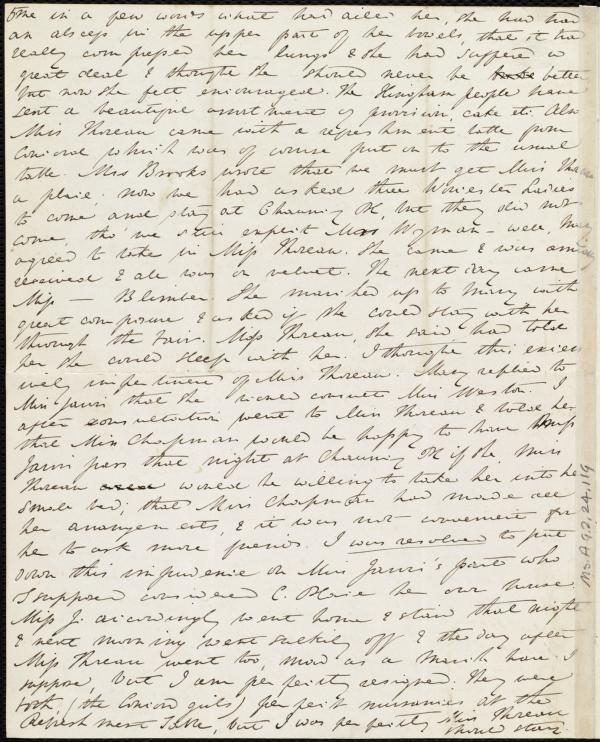 me in a few words what had ailed her, she had had
an abscess in the upper part of her bowels, that it had
really compressed her lungs & she had suffered a
great deal & thought she should never be better
but now she felt encouraged. The Hingham people have
sent a beautiful assortment of provision, cake etc. Also
Miss Thoreau came with a refreshment table from
Concord which was of course put on to the usual
table. Mrs Brooks wrote that we must get Miss Thoreau
a place, now we had asked three Worcester ladies
to come and stay at Chauncy Pl, but they did not
come, tho' we still expect Mrs Wyman - well, Mary
agreed to take in Miss Thoreau. She came & was amicably
received & all was on velvet. The next day came
Miss — Blimber. She marched up to Mary with
great composure & asked if she could stay with her
through the Fair. Miss Thoreau, she said had told
her she could sleep with her. I thought this exces-
sively impertinent of Miss Thoreau. Mary replied to
Miss Jarvis that she would consult Miss Weston. I
after consultation went to Miss Thoreau & told her
that Miss Chapman would be happy to have Miss
Jarvis pass that night at Chauncy Pl if she Miss
Thoreau would be willing to take her into her
small bed; that Miss Chapman had made all
her arrangements, & it was not convenient for
her to ask more friends. I was resolved to put
down this impudence on Miss Jarvis's part who
I supposed considered C. Place her own house
Miss J. accordingly went home & staid that night
& next morning went sulkily off & the day after
Miss Threau went too, mad as a March hare I
suppose, but I am perfectly resigned. They were
both, (the Concord girls) perfect nuisances at the
Refreshment Table, but I was perfectly Miss Threau
should stay.
Ms.A.9.2.24.119